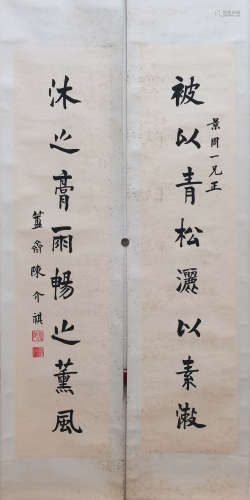 景周一兄正
被以青松灑以素潄
沐之膏雨暢之薰風
簠齋陳介祺